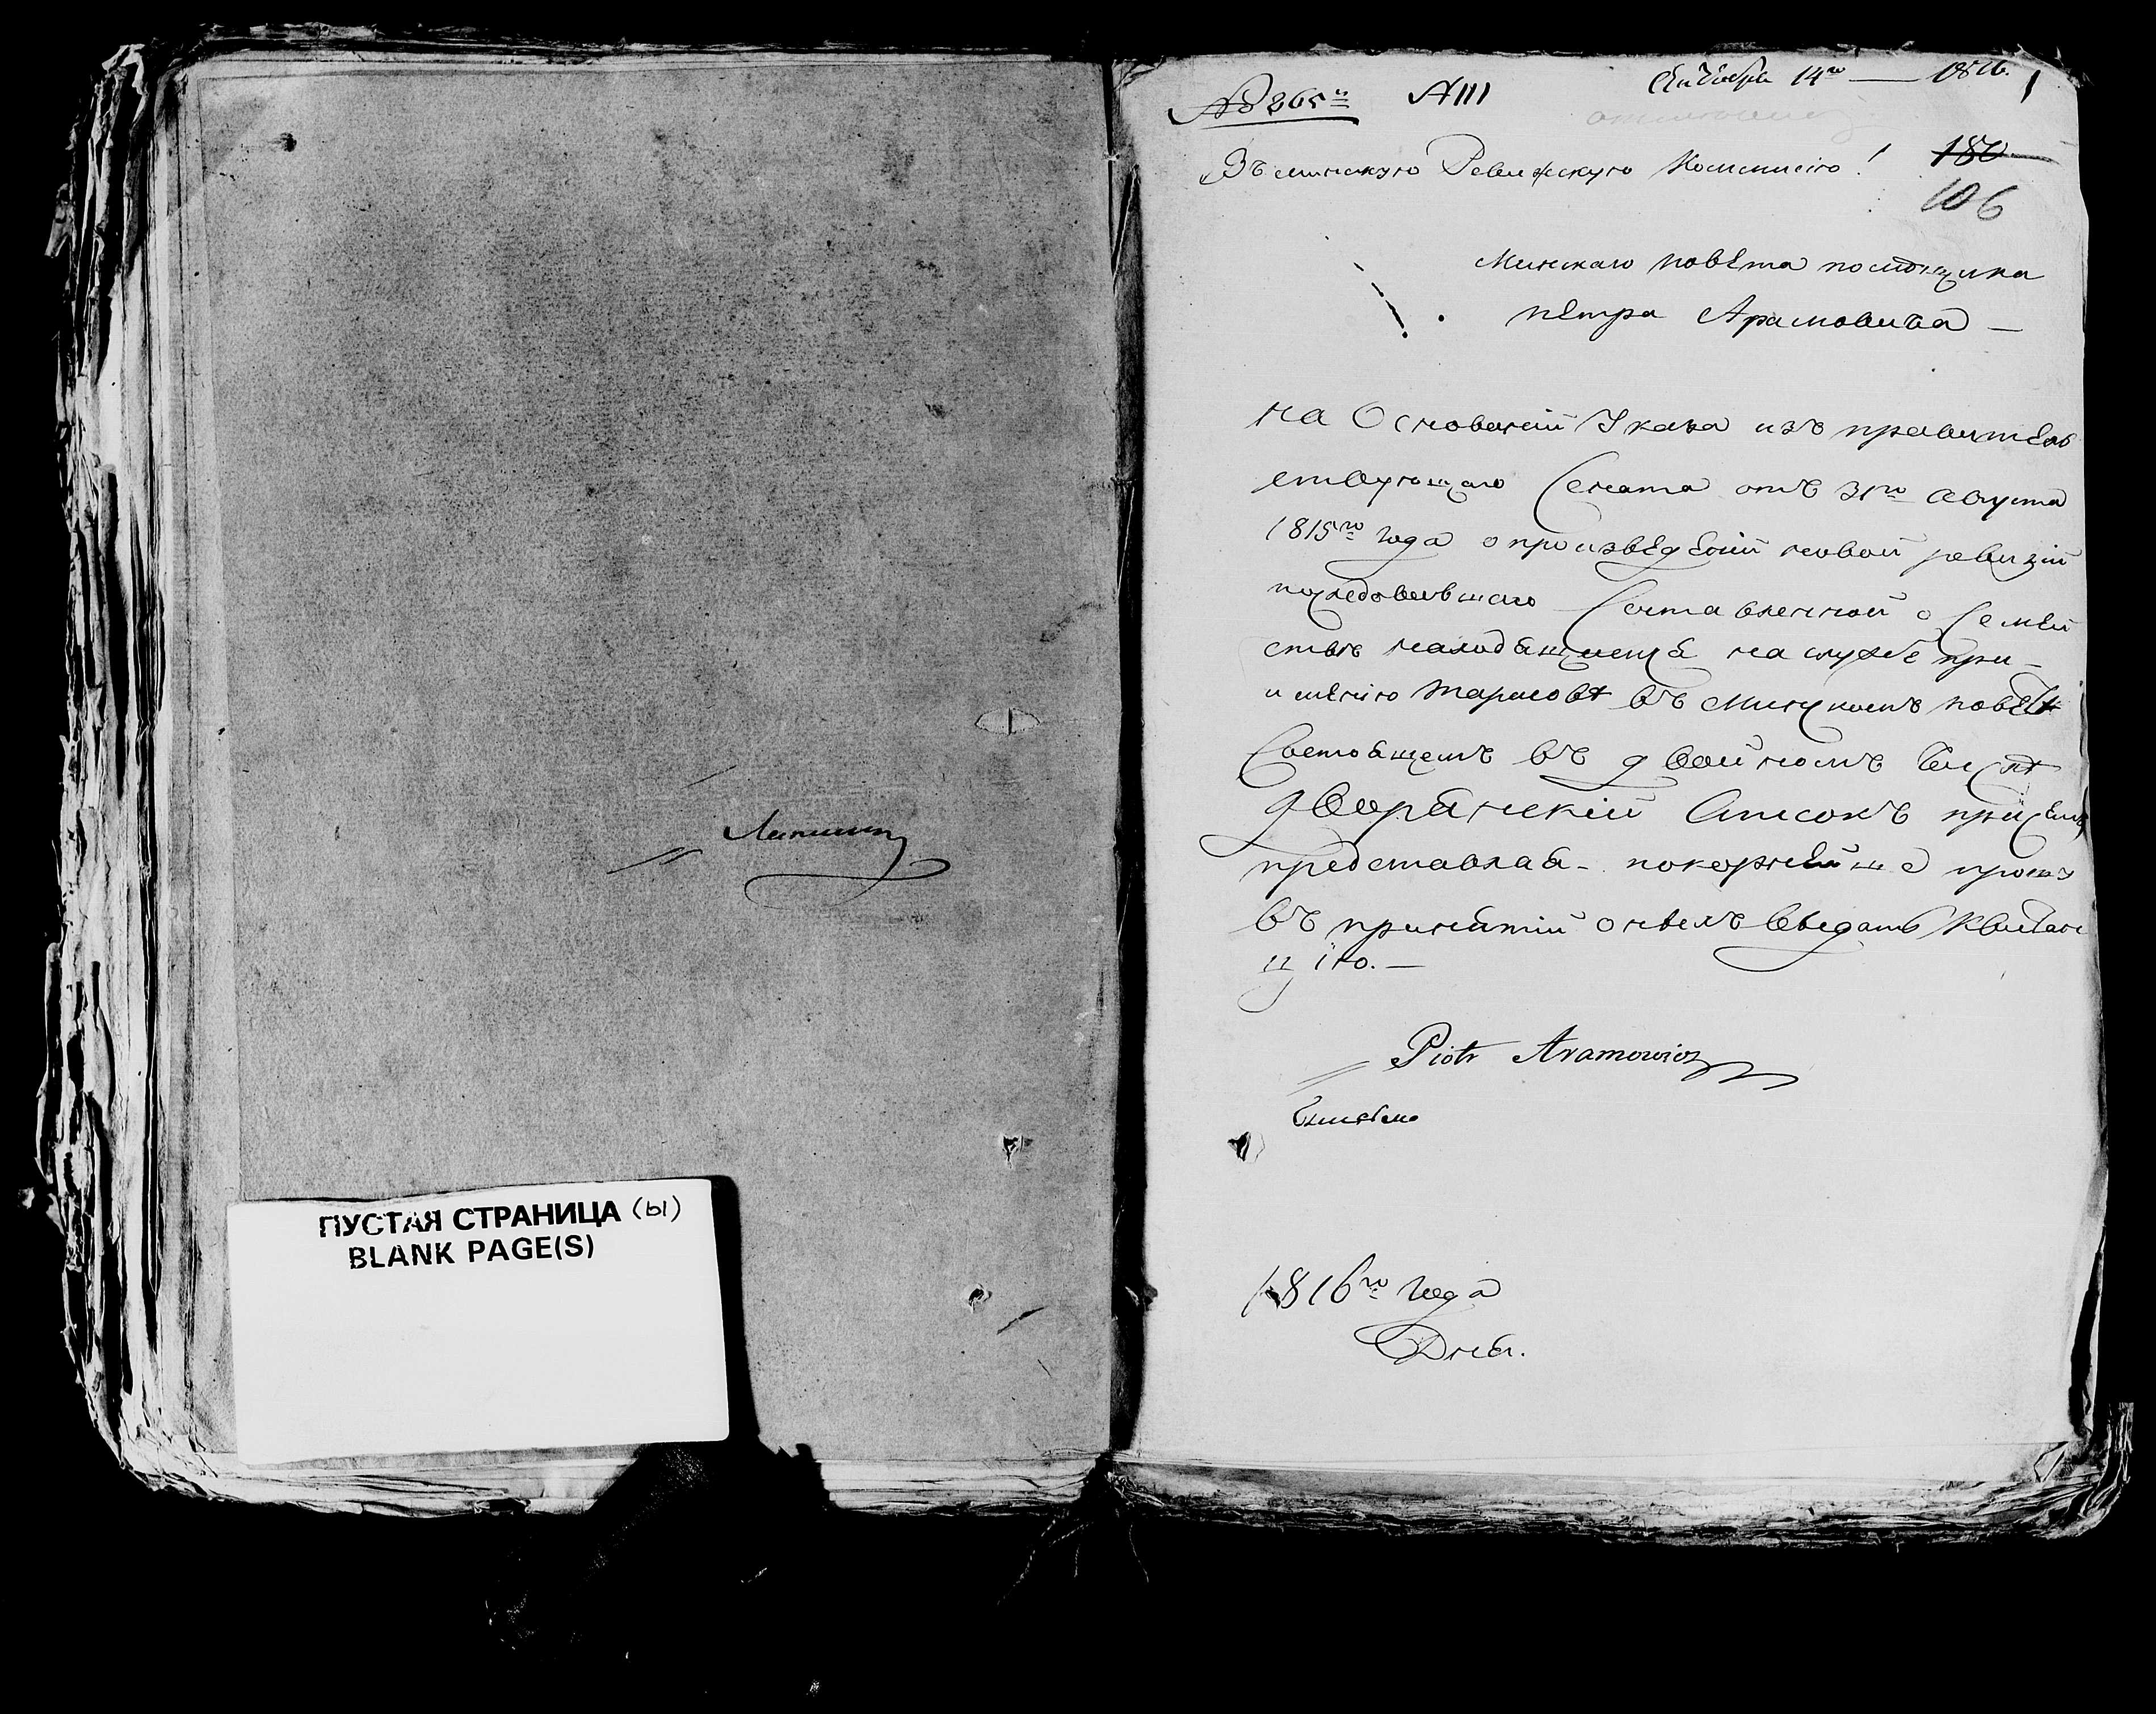 Лапинин
ПУСТАЯ СТРАНИЦА (ы)
BLANK PAGE(S)
Октября 14го — 1816. 1
№ 265й АIII
Въ минскую Ревижскую Комисию!
180
106
Минскаго повѣта помѣщика
пѣтра Арамовича —
на Основаній Указа изъ правитель
ствующаго Сената отъ 31го августа
1815го года о произведѣній новой ревизій
последовавшаго Составленной о Семей
ствѣ находящемся на службѣ при —
имѣнію Тарасовѣ въ Минскомъ повѣтѣ
Состоящемъ въ двойномъ числѣ
дворянскій Списокъ присемъ
представляя - покорнейше прошу
въ принятій онаго выдать Квитан
цію. —
Piotr Aramowicz
1816го года
Дня.